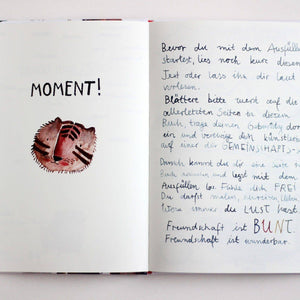 MOMENT!
Bevor du mit dem Ausfüllen
startest, lies noch kurz diesen
Text oder lass ihn dir laut
vorlesen.
Blättere bitte zuerst auf die
allerletzten Seiten in diesem
Buch, trage deinen Geburtstag dort
ein und
auf einer der GEMEINSCHAFTS
Danach kannst du dir eine Seite
Buch aussuchen und legst mit dem
Ausfüllen los. Fühle dich FREI
Du darfst malen,
Wozu immer du LUST hast.
Freundschaft ist BUNT.
Freundschaft ist wunderbar.